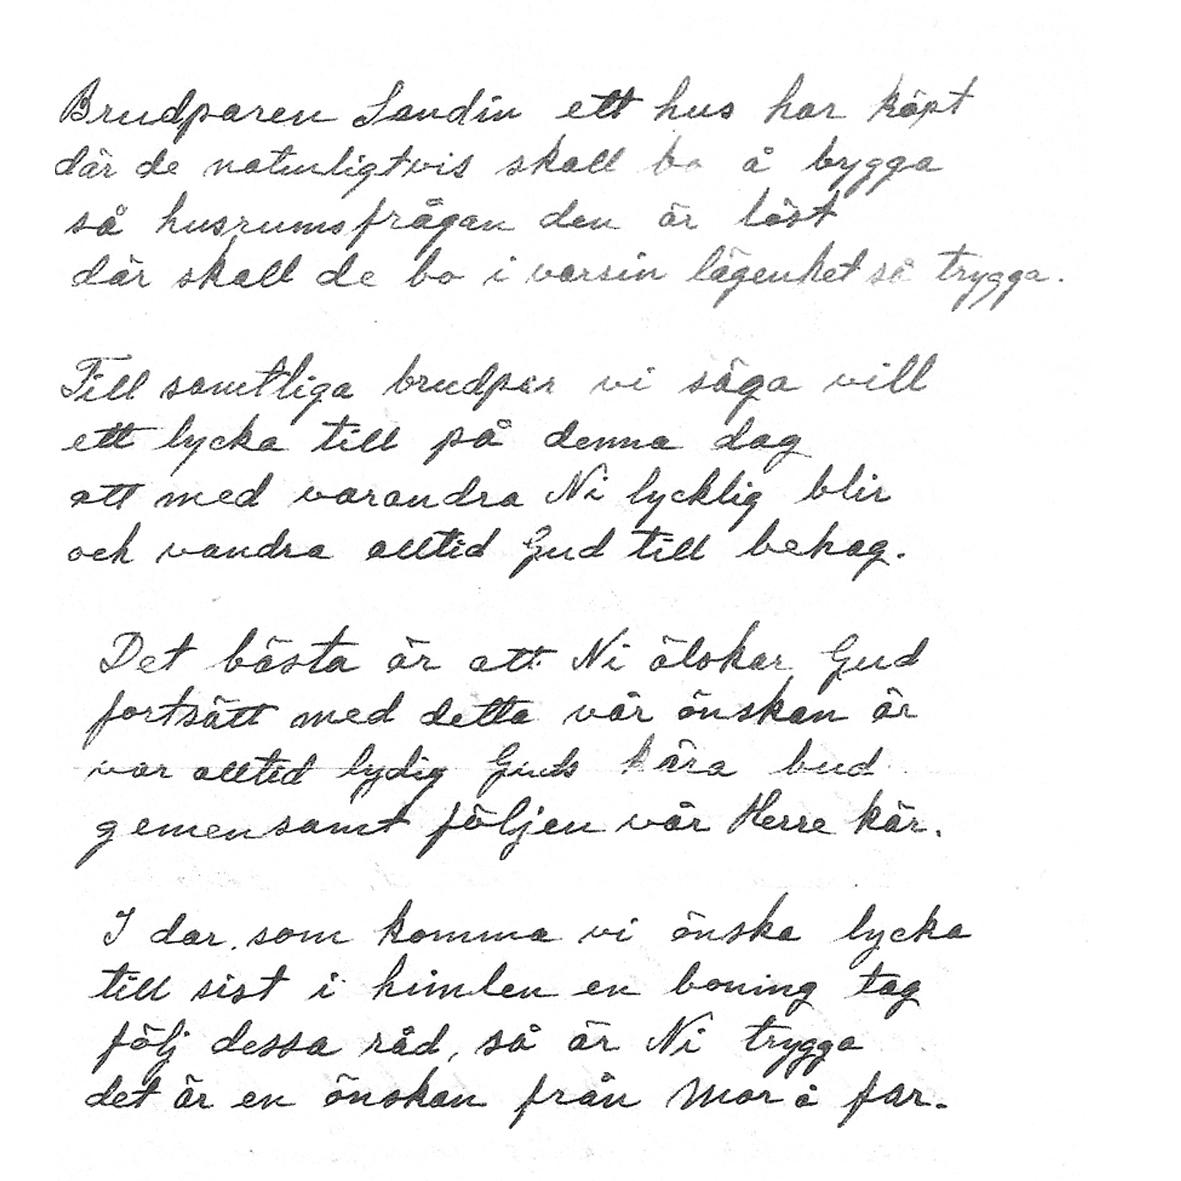 Brudparen Sandin ett hus har köpt
där de naturligtvis skall bo å bygga
så husrumsfrågan den är löst
där skall de bo i varsin lägenhet så trygga.
Till samtliga brudpar vi säga vill
ett lycka till på denna dag
att med varandra Ni lycklig blir
och vandra alltid Gud till behag.
Det bästa är att Ni älskar Gud
fortsätt med detta vår önskan är
var alltid lydig Guds kära bud
gemensamt följen vår Herre kär.
I dar som komma vi önska lycka
till sist i himlen en boning tag
följ dessa råd, så är Ni trygga
det är en önskan från Mor å far.